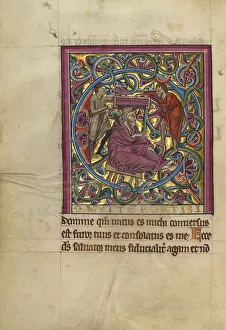 ONFITEBOR TIBI
Domine qm iratus es michi conuersus
est furor tuus et consolatus es me Ecce
ds saluator meus fiducialit agam et no